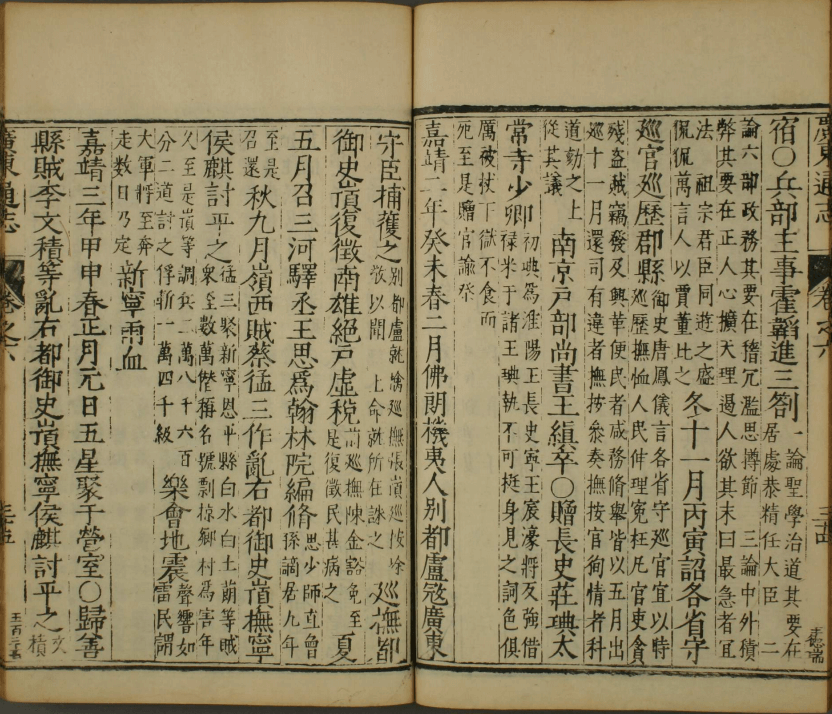 廣東通志
卷之六
三十四
宿○兵部主事霍韜進三劄一論聖學治道其要在居處恭精任大臣二
論六部政務其要在稽冗濫思撙節三論中外積弊其要在正人心擴天理遏人欲其末曰最急者宜
法祖宗君臣同遊之盛侃侃萬言人以賈董比之冬十一月丙寅詔各省守
巡官巡歷郡縣御史唐鳳儀言各省守巡官宜以時巡歷撫恤人民伸理寃枉凡官吏貪
殘盜賊竊發及興革便民者咸務脩舉皆以五月出巡十一月還司有違者撫按叅奏撫按官徇情者科
道劾之上從其議南京戶部尚書王縝卒○贈長史莊琠太
常寺少卿初琠為淮陽王長史寧王宸濠將反強借祿米于諸王琠執不可挺身見之詞色俱
厲被杖下獄不食而死至是贈官諭祭
嘉靖二年癸未春二月佛朗機夷人别都盧㓂廣東
守臣捕獲之别都盧就擒巡撫張嵿巡按涂敬以聞上命就所在誅之巡撫都
御史嵿復徵南雄絕戶虛稅前巡撫陳金豁免至是復徵民甚病之夏
五月召三河驛丞王思爲翰林院編脩思少師直曾孫謫居九年
至是召還秋九月嶺西賊蔡猛三作亂右都御史嵿撫寧
侯麒討平之猛三聚新寧恩平縣白水白土萠等賊衆至數萬僭稱名號剽掠鄉村爲害年
久至是嵿等調兵三萬八千六百分二道討之俘斬一萬四千級樂會地震聲響如雷民謂
大軍將至奔走數日乃定新寧雨血
嘉靖三年甲申春正月元日五星聚于營室○歸善
縣賊李文積等亂右都御史嵿撫寧侯麒討平之文積
廣東通志
卷之六
三十五